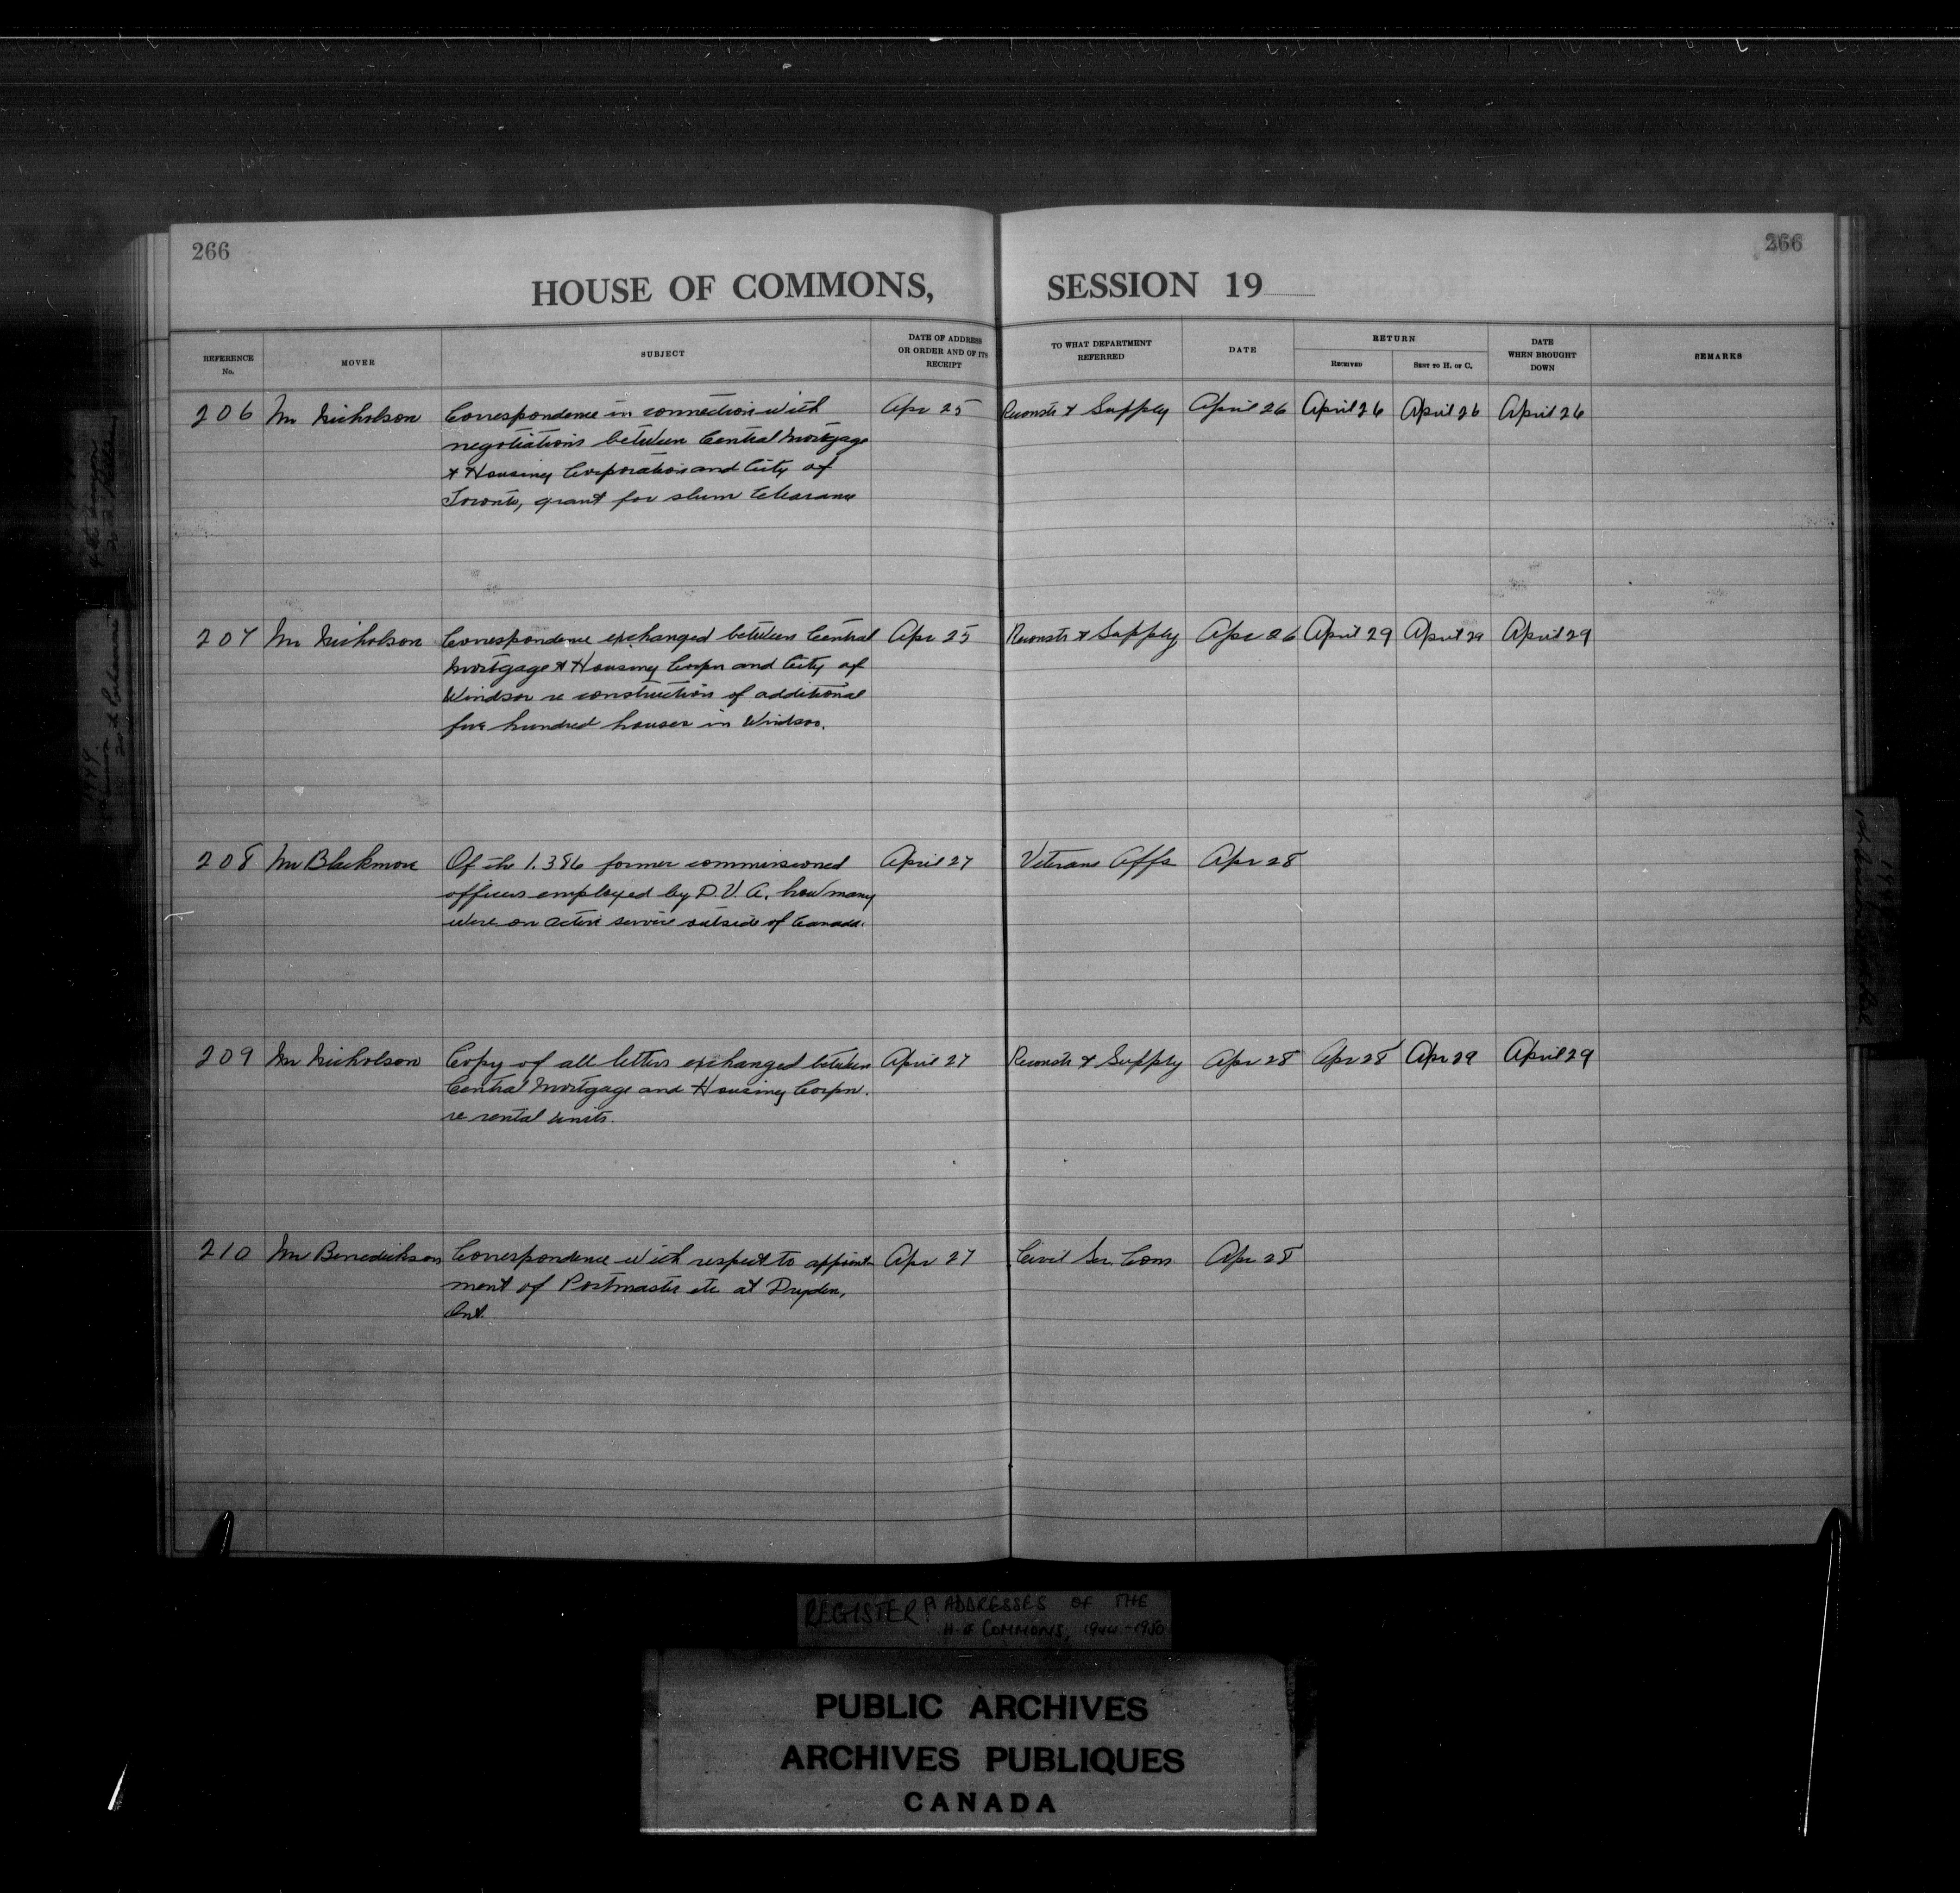 266
266
HOUSE OF COMMONS, SESSION 19
REFERENCE No.
MOVER
SUBJECT
DATE OF ADDRESS OR ORDER AND OF ITS RECEIPT
TO WHAT DEPARTMENT REFERRED
DATE
RETURN
RECEIVED
SENT TO H. OF C.
DATE WHEN BROUGHT DOWN
REMARKS
206 Mr Nicholson Correspondence in connection with Apr 25 Reconstr & Supply April 26 April 26 April 26 April 26
negotiations between Central Mortgage
& Housing Corporation and City of
Toronto, grant for slum clearance
207 Mr Nicholson Correspondence exchanged between Central Apr 25 Reconstr & Supply Apr 26 April 29 April 29 April 29
Mortgage & Housing Corpn and City of
Windsor re construction of additional
five hundred houses in Windsor.
208 Mr Blackmore Of the 1,386 former commissioned April 27 Veterans Affs Apr 28
officers employed by D.V.A. how many
were on active service outside of Canada.
209 Mr Nicholson Copy of all letters exchanged between April 27 Reconstr & Supply Apr 28 Apr 28 Apr 29 April 29
Central Mortgage and Housing Corpn.
re rental units.
210 Mr Benedickson Correspondence with respect to appoint- Apr 27 Civil Ser. Com. Apr 28
ment of Postmaster etc at Dryden,
Ont.
REGISTER OF ADDRESSES OF THE
H. of COMMONS, 1944-1950
PUBLIC ARCHIVES
ARCHIVES PUBLIQUES
CANADA